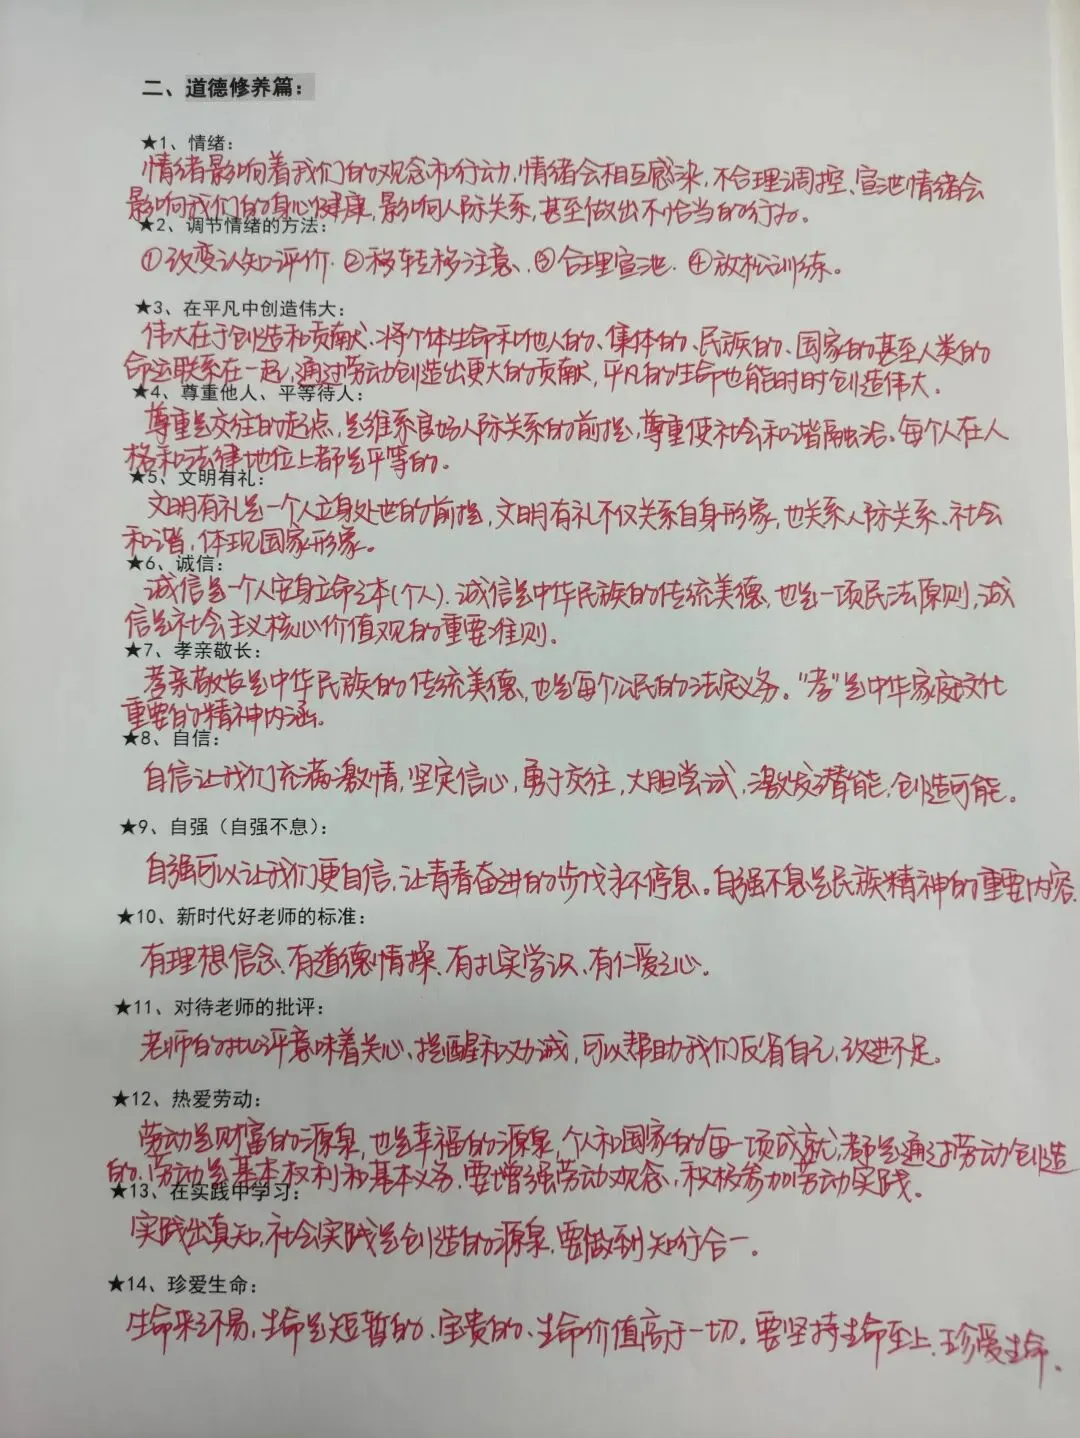 二、道德修养篇：
★1、情绪：
情绪影响着我们的观念和行动，情绪会相互感染，不合理调控、宣泄情绪会
影响我们的身心健康，影响人际关系，甚至做出不恰当的行为。
★2、调节情绪的方法：
①改变认知评价.②移转移注意.③合理宣泄.④放松训练。
★3、在平凡中创造伟大：
伟大在于创造和贡献、将个体生命和他人的、集体的、民族的、国家的甚至人类的
命运联系在一起，通过劳动创造出更大的贡献，平凡的生命也能时时创造伟大.
★4、尊重他人、平等待人：
尊重是交往的起点，是维系良好人际关系的前提，尊重使社会和谐融洽。每个人在人
格和法律地位上都是平等的。
★5、文明有礼：
文明有礼是一个人立身处世的前提，文明有礼不仅关系自身形象，也关系人际关系、社会
和谐，体现国家形象。
★6、诚信：
诚信是一个人安身立命之本(个人).诚信是中华民族的传统美德，也是一项民法原则，诚
信是社会主义核心价值观的重要准则。
★7、孝亲敬长：
孝亲敬长是中华民族的传统美德，也是每个公民的法定义务。“孝”是中华家庭文化
重要的精神内涵。
★8、自信：
自信让我们充满激情，坚定信心，勇于交往，大胆尝试，激发潜能，创造可能。
★9、自强（自强不息）：
自强可以让我们更自信，让青春奋进的步伐永不停息。自强不息是民族精神的重要内容.
★10、新时代好老师的标准：
有理想信念、有道德情操、有扎实学识、有仁爱之心。
★11、对待老师的批评：
老师的批评意味着关心、提醒和劝诫，可以帮助我们反省自己，改进不足。
★12、热爱劳动：
劳动是财富的源泉，也是幸福的源泉，个人和国家的每一项成就，都是通过劳动创造
的.劳动是基本权利和基本义务.要增强劳动观念，积极参加劳动实践。
★13、在实践中学习：
实践出真知，社会实践是创造的源泉.要做到知行合一。
★14、珍爱生命：
生命来之不易，生命是短暂的、宝贵的、生命价值高于一切。要坚持生命至上、珍爱生命.